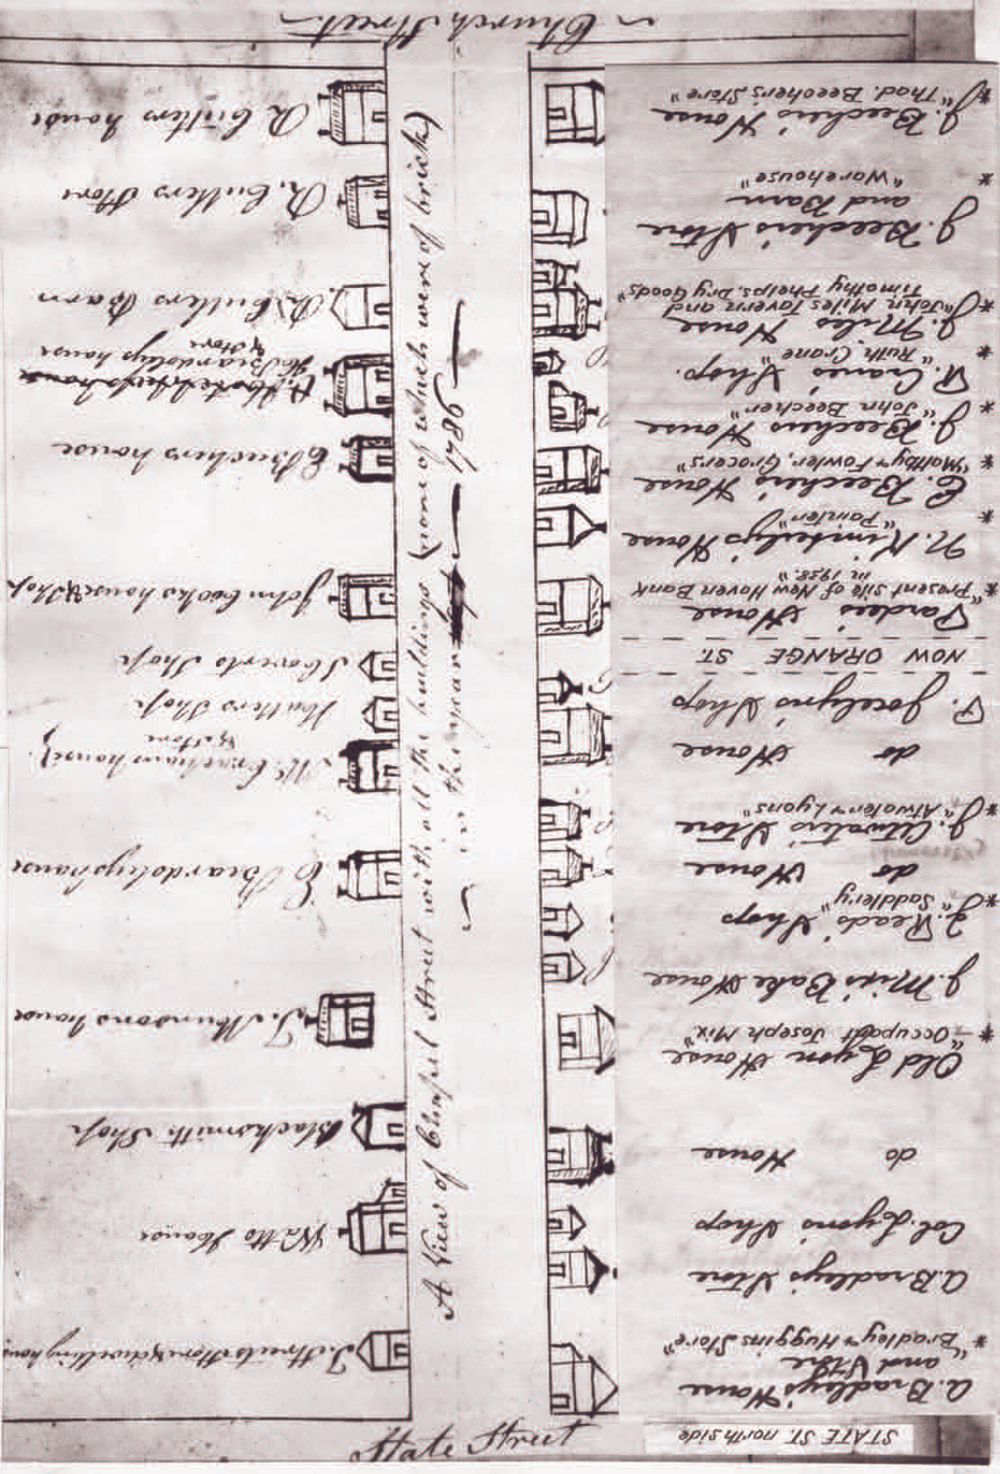 State Street
STATE ST. north side
A. Bradley's House
and Store
* "Bradley & Huggins Store"
A. Bradley's Store
Col. Lyon's Shop
do House
Old Lyon House
* "Occupant Joseph Mix"
J. Mix's Bake House
J. Read's Shop
* "Saddlery"
do House
J. Atwater's Store
* "Atwater & Lyons"
do House
P. Jocelyn's Shop
NOW ORANGE ST.
Pardee's House
* "Present Site of New Haven Bank
in 1938."
N. Kimberly's House
* "Painter"
E. Beecher's House
* "Maltby & Fowler, Grocers"
J. Beecher's House
* "John Beecher"
R. Crane's Shop.
* "Ruth Crane"
J. Miles House
* "John Miles Tavern and
Timothy Phelps. Dry Goods"
J. Beecher's Store
and Barn
* "Warehouse"
J. Beecher's House
* "Thad. Beecher's Store"
A View of Chapel Street with all the buildings (none of which were of brick)
in the year 1786
J. Streets Store & dwelling house
Watts House
Blacksmith Shop
J. Munsons house
E Beardsleys house
house
& Store
Hatters Shop
Shop
John Cooks house & Shop
house
H Beardsleys house
& Store
R. Cutlers Barn
R. Cutlers Store
R Cutlers house
Church Street